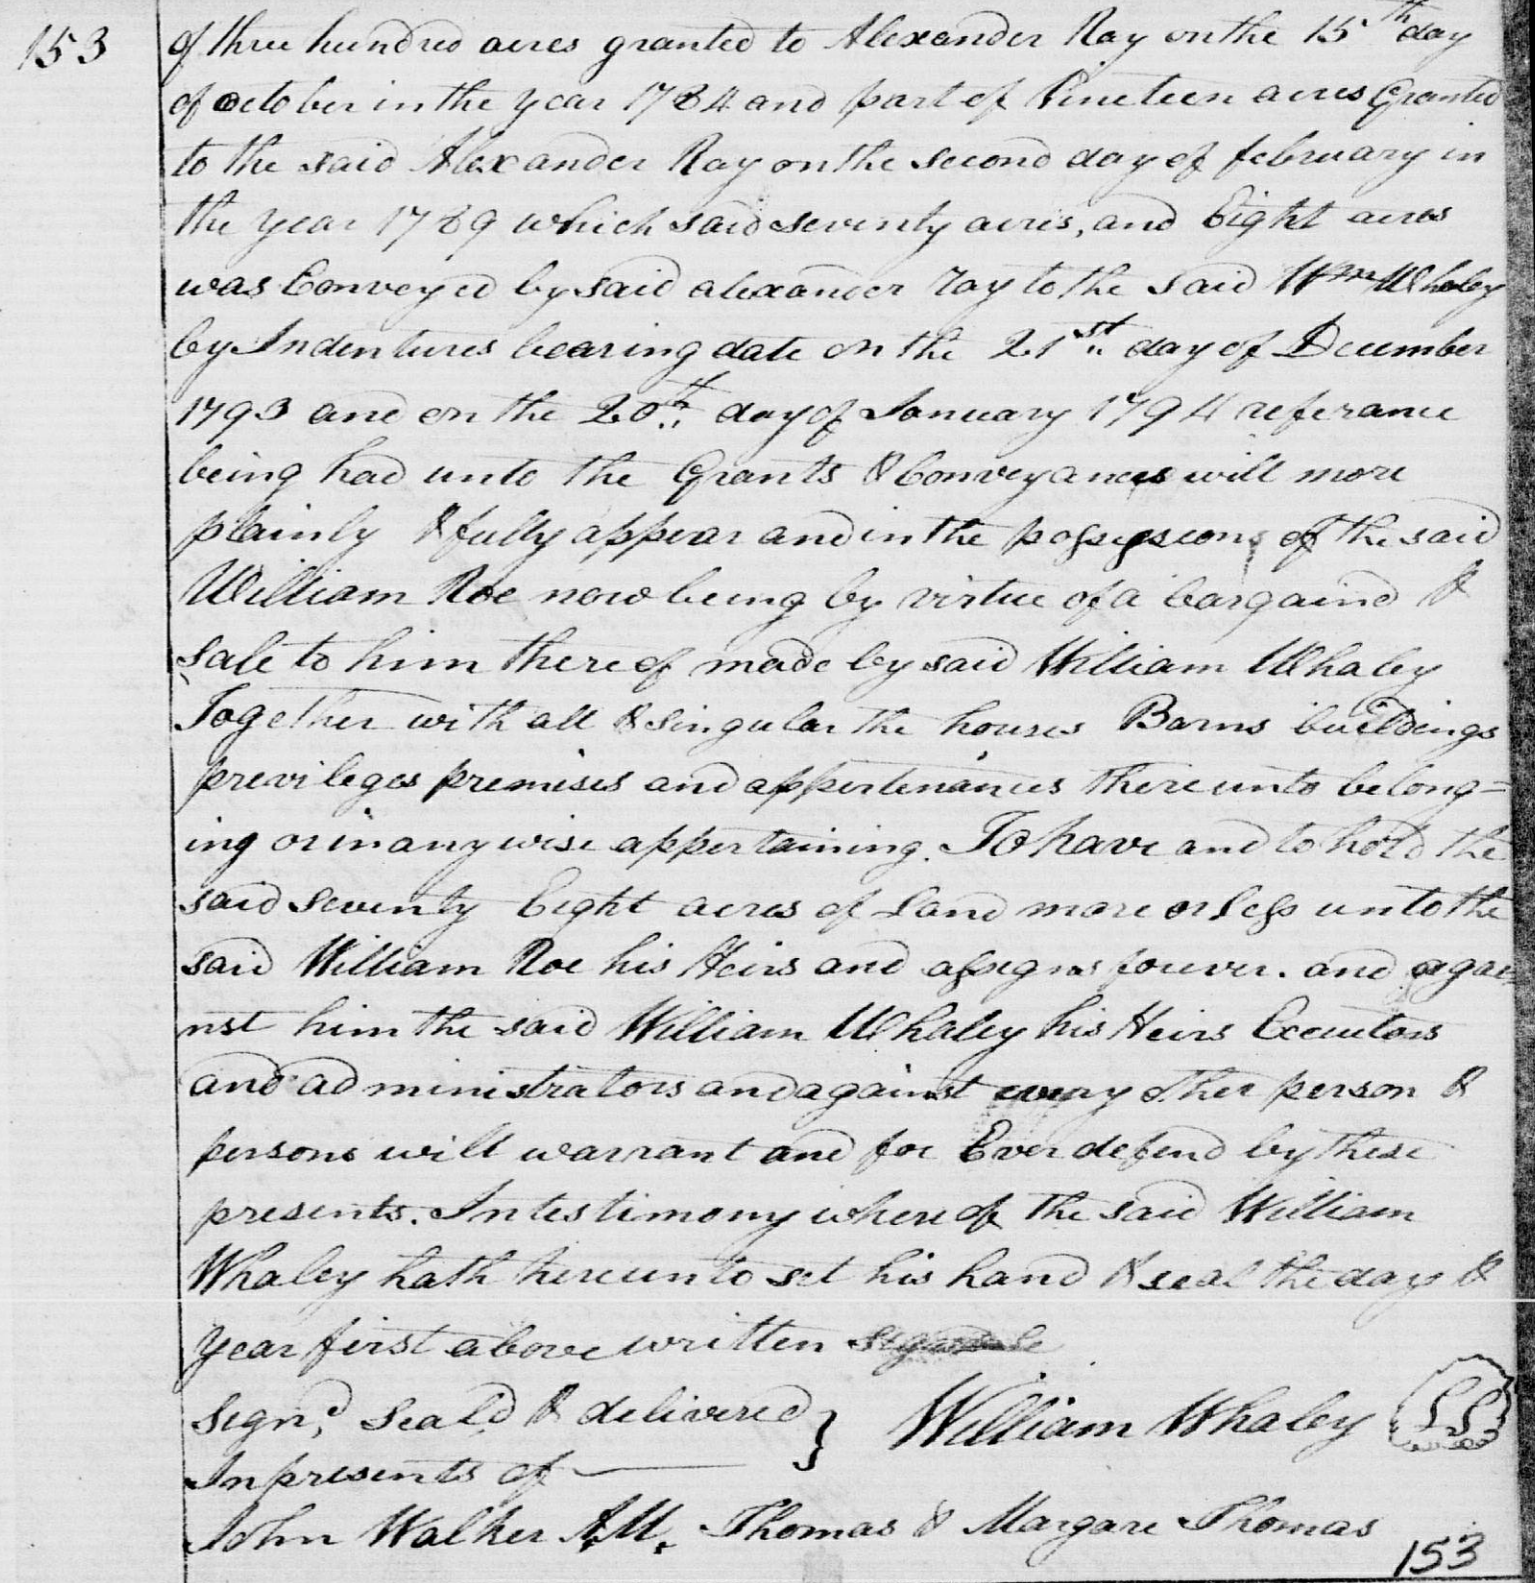 153
of three hundred acres granted to Alexander Ray on the 15th day
of october in the year 1784 and part of Nineteen acres Granted
to the said Alexander Ray on the second day of february in
the year 1789 which said seventy acres, and Eight acres
was Conveyed by said alexander ray to the said Wm Whaley
by Indentures bearing date on the 21st day of December
1793 and on the 20th day of January 1794 referance
being had unto the Grants & Conveyances will more
plainly & fully appear and in the possession of the said
William Roe now being by virtue of a bargaind &
sale to him there of made by said William Whaley
Together with all & singular the houses Barns buildings
previleges premises and appertenances there unto belong=
ing or in any wise appertaining. To have and to hold the
said seventy Eight acres of Land more or less unto the
said William Roe his Heirs and assigns forever. and agai
nst him the said William Whaley his Heirs Executors
and administrators and against every other person &
persons will warrant and for Ever defend by these
presents. In testimony where of the said William
Whaley hath hereunto set his hand & seal the day &
year first above written
Signd, Seald & delivered } William Whaley LS
In presents of
John Walker A.M. Thomas & Margare Thomas
153